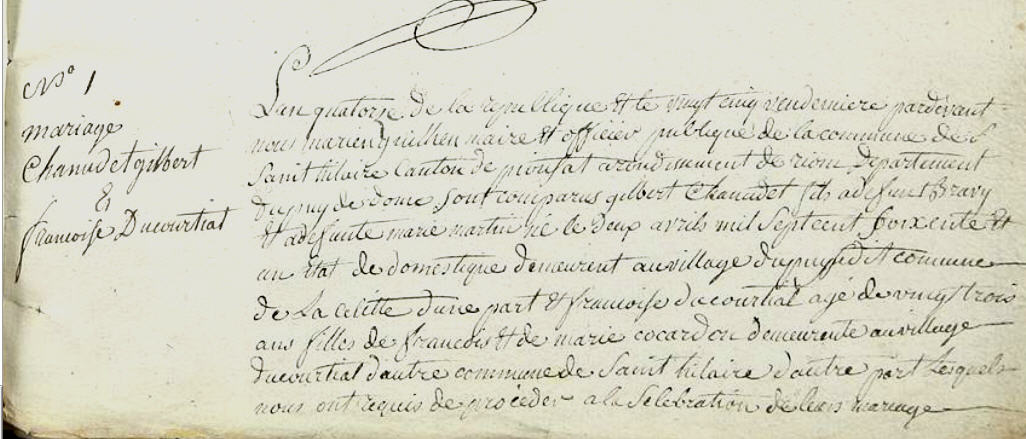 N° 1
mariage
Chanudet gilbert
Et
francoise Ducourtial
L'an quatorze de la republique Et le vingt cinq vendemiere pardevant
nous marien quilhen maire Et officier publique de la commune de
Saint hilaire Canton de pionsat arondissment de riom departement
Dupuy de dome Sont comparus gilbert Chanudet fils a defunt Bravy
Et adefunte marie martin né le Deux avrils mil Septcent Soixente Et
un Etat de domestique demeurent auvillage dupuy dit commune
de La Celétte d'une part Et francoise ducourtial agé de vingt trois
ans filles de francois Et de marie cocardon demeurente auvillage
ducourtial d'autre commune de Saint hilaire d'autre part Lesquels
nous ont requis de procéder a la Selebration de leurs mariage